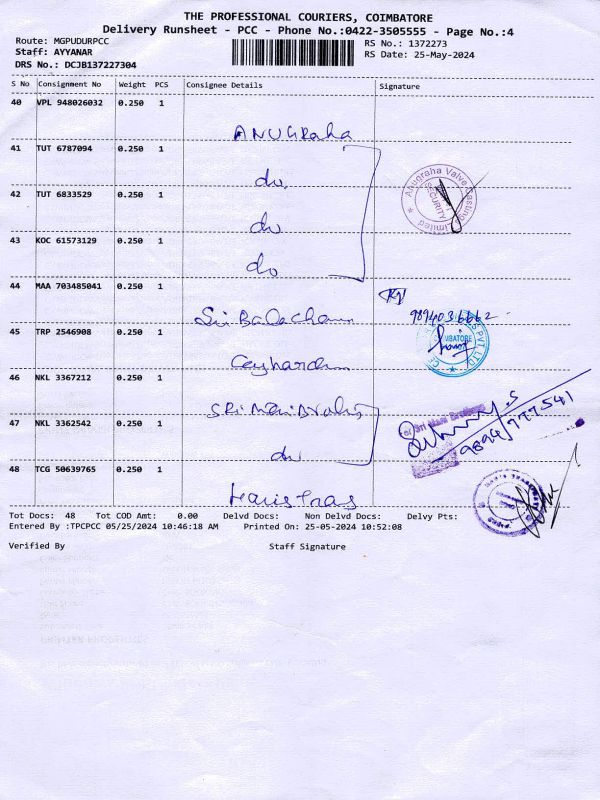 THE PROFESSIONAL COURIERS, COIMBATORE
Delivery Runsheet - PCC - Phone No.:0422-3505555 - Page No.:4
Route: MGPUDURPCC
Staff: AYYANAR
DRS No.: DCJB137227304
RS No.: 1372273
RS Date: 25-May-2024
S No Consignment No Weight PCS Consignee Details Signature
40 VPL 948026032 0.250 1
ANUGRaha
41 TUT 6787094 0.250 1
do
Anugraha Valve Casting Limited
SECURITY
42 TUT 6833529 0.250 1
do
43 KOC 61573129 0.250 1
do
44 MAA 703485041 0.250 1
Sri Balacham
9894036662
45 TRP 2546908 0.250 1
46 NKL 3367212 0.250 1
SRi Mani Broths
Sri Mani Brothers
9894777541
47 NKL 3362542 0.250 1
do
48 TCG 50639765 0.250 1
Haris Tras
Tot Docs: 48 Tot COD Amt: 0.00 Delvd Docs: Non Delvd Docs: Delvy Pts:
Entered By :TPCPCC 05/25/2024 10:46:18 AM Printed On: 25-05-2024 10:52:08
Verified By Staff Signature